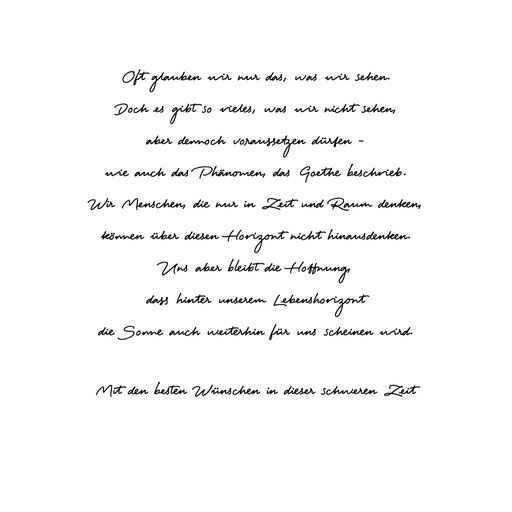 Oft glauben wir nur das, was wir sehen.
Doch es gibt so vieles, was wir nicht sehen,
aber dennoch voraussetzen dürfen -
wie auch das Phänomen, das Goethe beschrieb.
Wir Menschen, die nur in Zeit und Raum denken,
können über diesen Horizont nicht hinausdenken.
Uns aber bleibt die Hoffnung,
dass hinter unserem Lebenshorizont
die Sonne auch weiterhin für uns scheinen wird.
Mit den besten Wünschen in dieser schweren Zeit